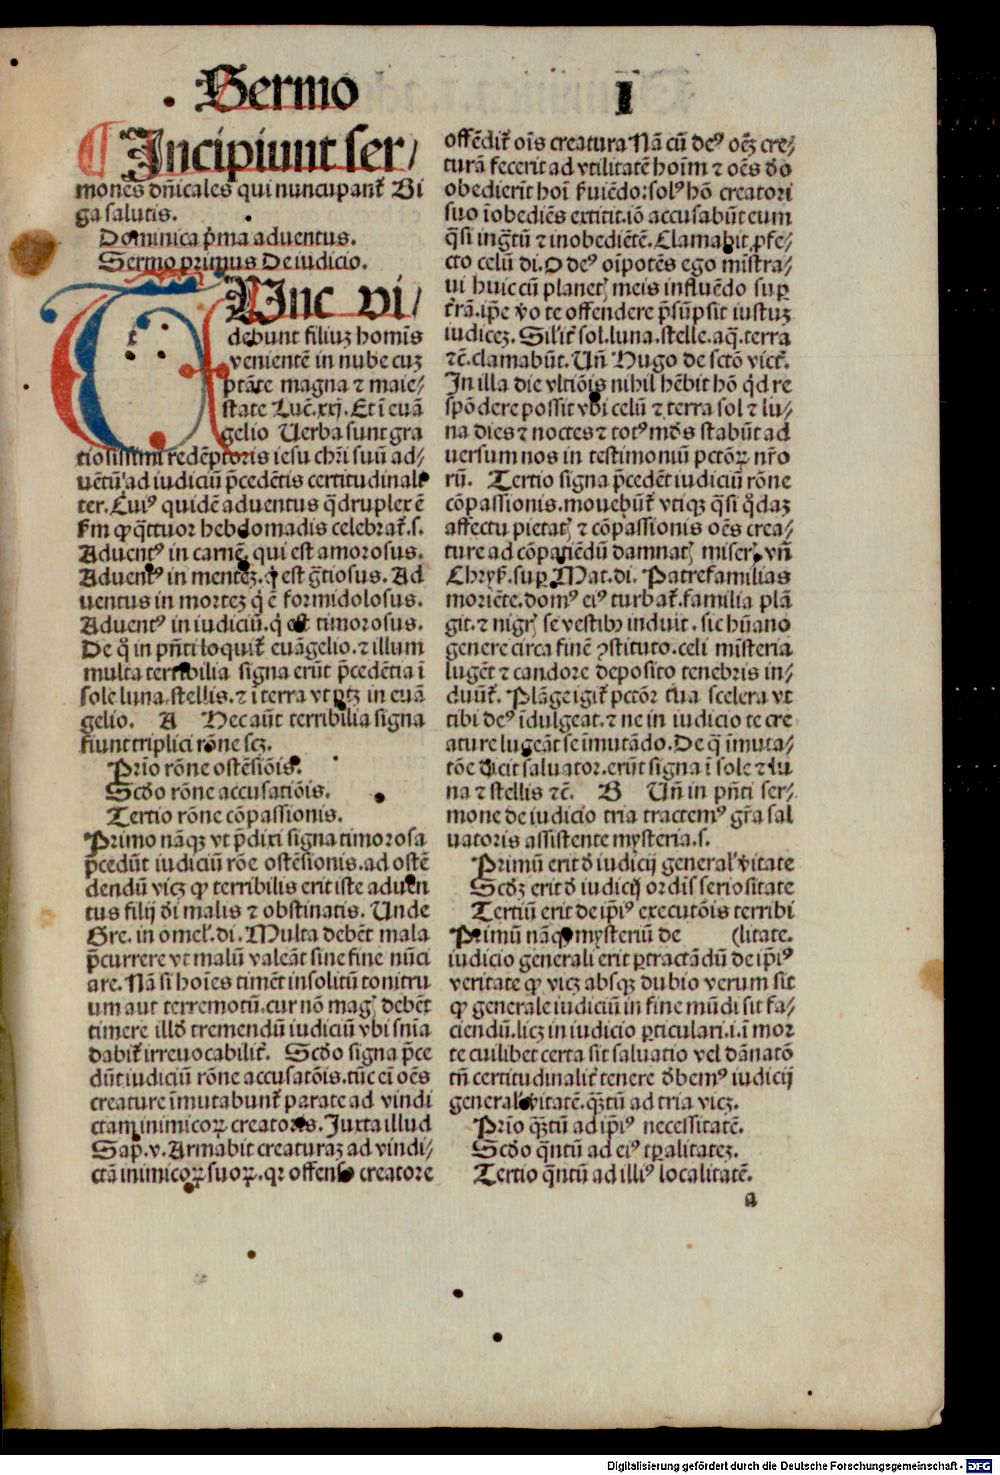 Sermo I
¶ Incipiunt ser/
mones dn̄icales qui nuncupant᷑ Bi
ga salutis.
Dominica p̄ma aduentus.
Sermo primus De iudicio.
TUnc vi/
debunt filiuz homīs
venientē in nube cuz
ptāte magna ⁊ maie/
state Luc̄.xxj. Et ī euā
gelio Uerba sunt gra
tiosissimi redēptoris iesu chr̄i suū ad-
uētū ad iudiciū p̄cedētis certitudinali
ter. Cuiꝰ quidē aduentus q̄druplex ē
fm ꝙ q̄ttuor hebdomadis celebrat᷑.s.
Aduentꝰ in carnē, qui est amorosus.
Aduentꝰ in mentez. q̇ est ḡtiosus. Ad
uentus in mortez q̇ ē formidolosus.
Aduentꝰ in iudiciū. q̇ est timorosus.
De q̊ in pn̄ti loquit᷑ euāgelio. ⁊ illum
multa terribilia signa erūt p̄cedētia ī
sole luna stellis. ⁊ ī terra vt ptꝫ in euā
gelio. A Hec aūt terribilia signa
fiunt triplici rōne scꝫ.
Prīo rōne ostēsiōis.
Scd̄o rōne accusatiōis.
Tertio rōne cōpassionis.
Primo nāqꝫ vt p̄dixi signa timorosa
p̄cedūt iudiciū rōe ostēsionis. ad ostē
dendū vicꝫ ꝙ terribilis erit iste aduen
tus filij dī malis ⁊ obstinatis. Unde
Gre. in omel̓. di. Multa debēt mala
p̄currere vt malū valeāt sine fine nūci
are. Nā si hoīes timēt insolitū tonitru
um aut terremotū. cur nō magꝭ debēt
timere illd̓ tremendū iudiciū vbi snīa
dabit᷑ irreuocabilit᷑. Scd̄o signa p̄ce
dūt iudiciū rōne accusatōis. tūc ei oēs
creature īmutabunt᷑ parate ad vindi
ctam inimicoꝝ creatoris. Juxta illud
Sap̄.v. Armabit creaturaz ad vindi/
ctā inimicoꝝ suoꝝ. qr offenso creatore
offēdit᷑ oīs creatura Nā cū deꝰ oēꝫ cre/
turā fecerit ad vtilitatē hoīm ⁊ oēs d̓o
obedierīt hoī ẜuiēdo: solꝰ hō creatori
suo īobediēs extitit. iō accusabūt eum
q̄si ingr̄tū ⁊ inobediētē. Clamabit ꝓfe/
cto celū di. O deꝰ oīpotēs ego mīstra/
ui huic cū planetꝭ meis influēdo suꝑ
t᷑rā. ip̄e v̓o te offendere p̄sūpsit iustuz
iudicez. Sil̓it᷑ sol. luna. stelle. aq̄. terra
⁊c̄. clamabūt. Un̄ Hugo de sctō vict̄.
In illa die vltiōis nihil hēbit hō qd̓ re
spōdere possit vbi celū ⁊ terra sol ⁊ lu/
na dies ⁊ noctes ⁊ totꝰ mūds stabūt ad
versum nos in testimoniū pctōꝝ nr̄o
rū. Tertio signa p̄cedēt iudiciū rōne
cōpassionis. mouebūt᷑ vtiqꝫ q̄si q̊daz
affectu pietatꝭ ⁊ cōpassionis oēs crea/
ture ad cōpatiēdū damnatꝭ miserꝭ. vn̄
Chryẜ. suꝑ Mat. di. Patrefamilias
moriēte. domꝰ eiꝰ turbat᷑. familia plā
git. ⁊ nigrꝭ se vestibꝫ induit. sic hūano
genere circa finē ꝯstituto. celi mīsteria
lugēt ⁊ candore deposito tenebris in/
duūt᷑. Plāge igit᷑ pctōr tua scelera vt
tibi deꝰ īdulgeat. ⁊ ne in iudicio te cre
ature lugeāt se īmutādo. De q̄ īmuta/
tōe dicit saluator. erūt signa ī sole ⁊ lu
na ⁊ stellis ⁊c̄. B Un̄ in pn̄ti ser/
mone de iudicio tria tractemꝰ gr̄a sal
uatoris assistente mysteria.s.
Primū erit d̓ iudicij general̓ v̓itate
Scd̓ꝫ erit d̓ iudicij ordīs seriositate
Tertiū erit de ip̄iꝰ executōis terribi
Primū nāqꝫ mysteriū de (litate.
iudicio generali erit ꝑtractādū de ip̄iꝰ
veritate ꝙ vicꝫ absqꝫ dubio verum sit
ꝙ generale iudiciū in fine mūdi sit fa/
ciendū. licꝫ in iudicio ꝑticulari.i. ī mor
te cuilibet certa sit saluatio vel dānatō
tn̄ certitudinalit᷑ tenere d̓bemꝰ iudicij
general̓ v̓itatē. q̄ꝫtū ad tria vicꝫ.
Prīo q̄ꝫtū ad ip̄iꝰ necessitatē.
Scd̄o q̄ntū ad eiꝰ tꝑalitatez.
Tertio q̄ntū ad illiꝰ localitatē.
a
Digitalisierung gefördert durch die Deutsche Forschungsgemeinschaft - DFG